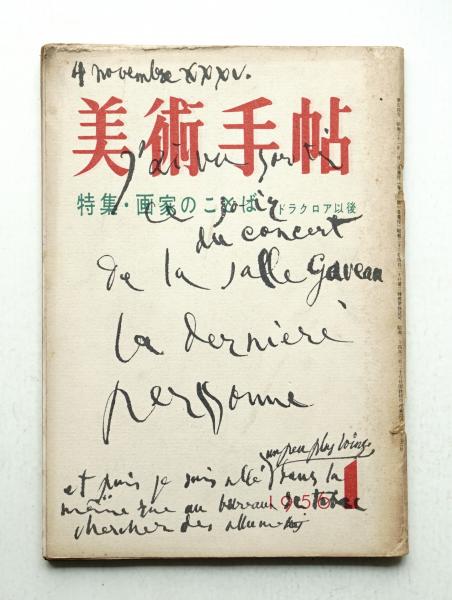 4 novembre XXXV.
美術手帖
j'ai vu sortir
特集・画家のことば ドラクロア以後
ce soir
du concert
de la salle Gaveau
la dernière
personne
un peu plus loin
et puis je suis allé dans la
1956 1
même rue au bureau de tabac
chercher des allumettes